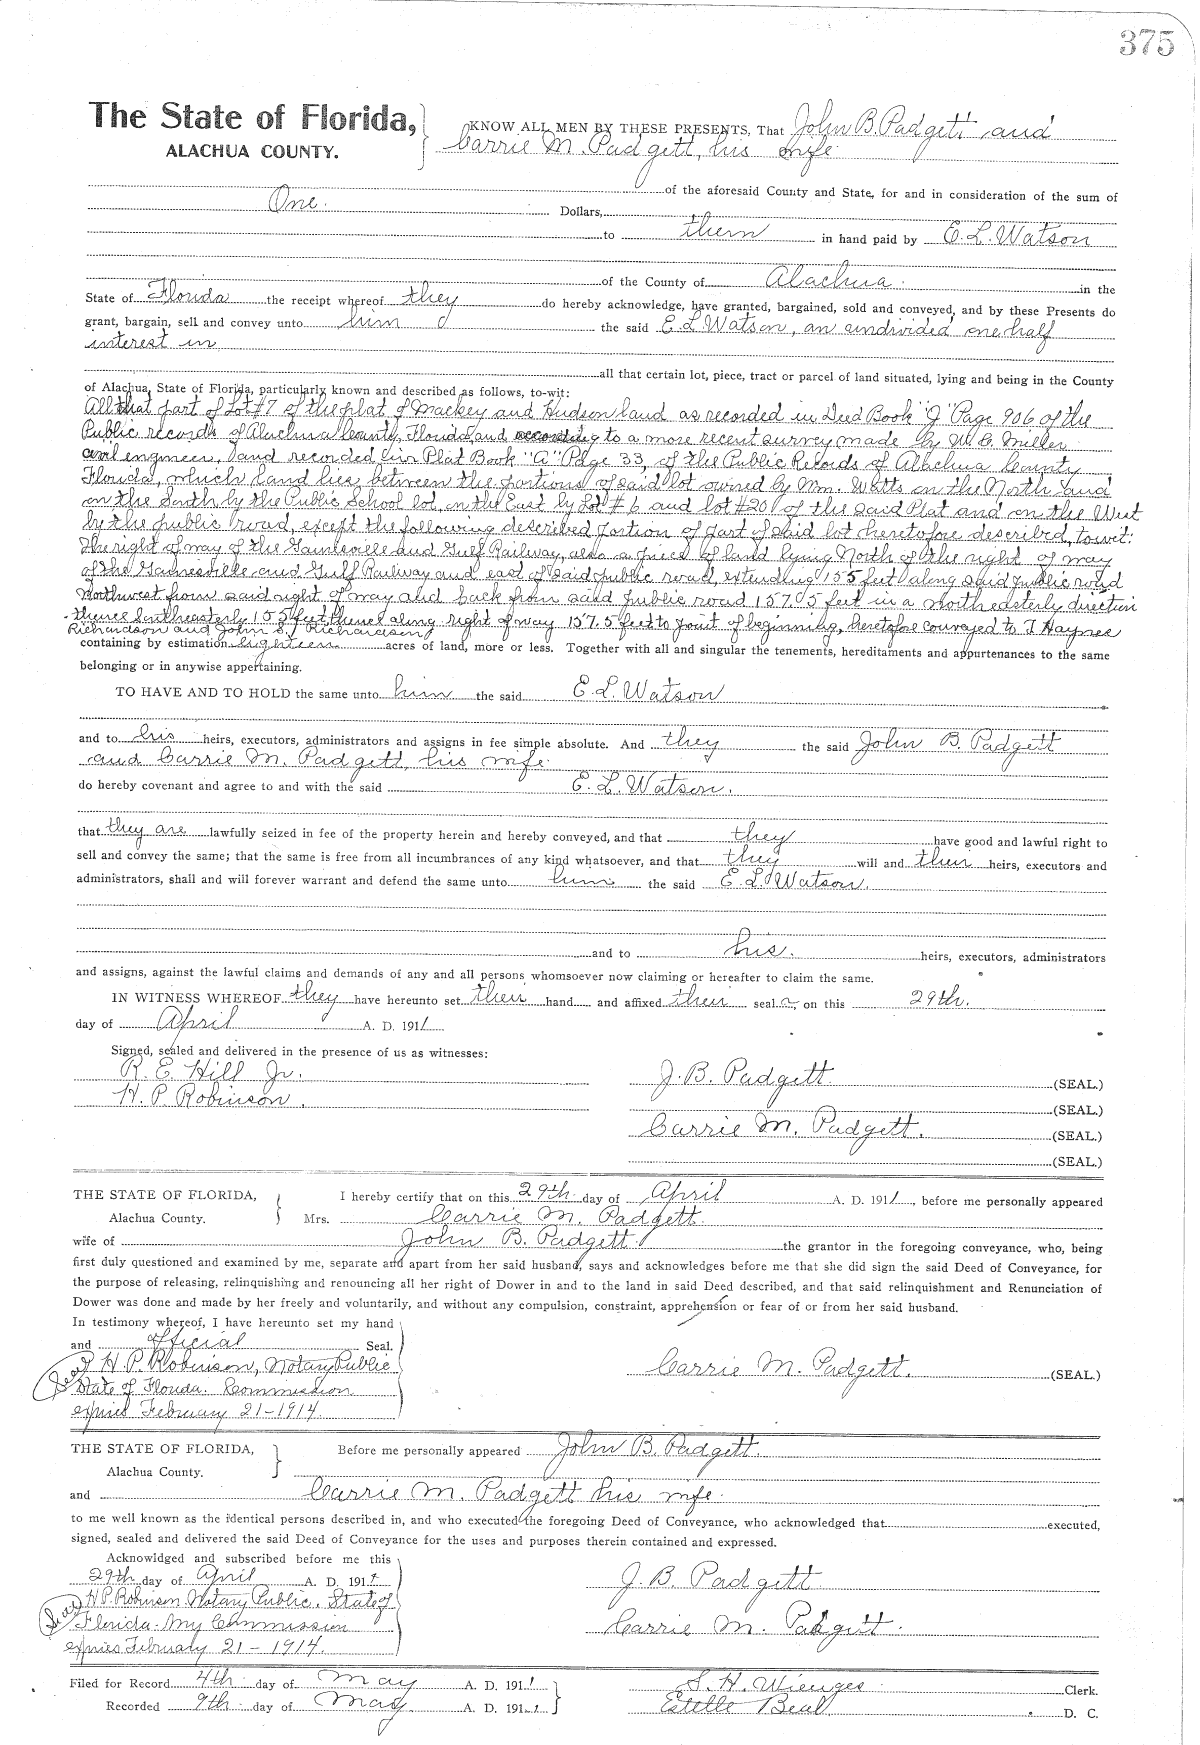 375
The State of Florida,
ALACHUA COUNTY.
KNOW ALL MEN BY THESE PRESENTS, That John B. Padgett and
Carrie M. Padgett, his wife
of the aforesaid County and State, for and in consideration of the sum of
One. Dollars,
to them in hand paid by E. L. Watson
of the County of Alachua. in the
State of Florida the receipt whereof they do hereby acknowledge, have granted, bargained, sold and conveyed, and by these Presents do
grant, bargain, sell and convey unto him the said E. L. Watson, an undivided one half
interest in
all that certain lot, piece, tract or parcel of land situated, lying and being in the County
of Alachua, State of Florida, particularly known and described as follows, to-wit:
All that part of Lot #7 of the plat of Mackey and Hudson land as recorded in Deed Book "J" Page 906 of the
Public records of Alachua County, Florida, and according to a more recent survey made by W. C. Miller
civil engineer, and recorded in Plat Book "A" Page 33, of the Public Records of Alachua County
Florida, which land lies between the portions of said lot owned by Mm. Watts on the North and
on the South by the Public School lot, on the East by Lot #6 and lot #20 of the said Plat and on the West
by the public road, except the following described portion of part of said lot heretofore described, to wit:
The right of way of the Gainesville and Gulf Railway, also a piece of land lying North of the right of way
of the Gainesville and Gulf Railway and east of said public road, extending 155 feet along said public road
Northwest from said right of way and back from said public road 157.5 feet in a northeasterly direction
thence Southeasterly 155 feet thence along right of way 157.5 feet to point of beginning, heretofore conveyed to T Haynes
Richardson and John S. Richardson
containing by estimation eighteen acres of land, more or less. Together with all and singular the tenements, hereditaments and appurtenances to the same
belonging or in anywise appertaining.
TO HAVE AND TO HOLD the same unto him the said E. L. Watson
and to his heirs, executors, administrators and assigns in fee simple absolute. And they the said John B. Padgett
and Carrie M. Padgett, his wife
do hereby covenant and agree to and with the said E. L. Watson.
that they are lawfully seized in fee of the property herein and hereby conveyed, and that they have good and lawful right to
sell and convey the same; that the same is free from all incumbrances of any kind whatsoever, and that they will and their heirs, executors and
administrators, shall and will forever warrant and defend the same unto him the said E. L. Watson.
and to his. heirs, executors, administrators
and assigns, against the lawful claims and demands of any and all persons whomsoever now claiming or hereafter to claim the same.
IN WITNESS WHEREOF they have hereunto set their hand and affixed their seal s, on this 29th.
day of April A. D. 1911
Signed, sealed and delivered in the presence of us as witnesses:
R. E. Hill Jr.
H. P. Robinson.
J. B. Padgett (SEAL.)
(SEAL.)
Carrie M. Padgett. (SEAL.)
(SEAL.)
THE STATE OF FLORIDA,
Alachua County.
I hereby certify that on this 29th day of April A. D. 1911, before me personally appeared
Mrs. Carrie M. Padgett.
wife of John B. Padgett. the grantor in the foregoing conveyance, who, being
first duly questioned and examined by me, separate and apart from her said husband, says and acknowledges before me that she did sign the said Deed of Conveyance, for
the purpose of releasing, relinquishing and renouncing all her right of Dower in and to the land in said Deed described, and that said relinquishment and Renunciation of
Dower was done and made by her freely and voluntarily, and without any compulsion, constraint, apprehension or fear of or from her said husband.
In testimony whereof, I have hereunto set my hand
and official Seal.
Seal H. P. Robinson, Notary Public
State of Florida. Commission
expires February 21-1914.
Carrie M. Padgett. (SEAL.)
THE STATE OF FLORIDA,
Alachua County.
Before me personally appeared John B. Padgett.
and Carrie M. Padgett his wife.
to me well known as the identical persons described in, and who executed the foregoing Deed of Conveyance, who acknowledged that executed,
signed, sealed and delivered the said Deed of Conveyance for the uses and purposes therein contained and expressed.
Acknowldged and subscribed before me this
29th day of April A. D. 1911
Seal H P. Robinson Notary Public. State of
Florida. My Commission
expires February 21 - 1914.
J. B. Padgett
Carrie M. Padgett.
Filed for Record 4th day of May A. D. 1911
Recorded 9th day of May A. D. 1911
S. H. Wienges Clerk.
Estelle Beal D. C.